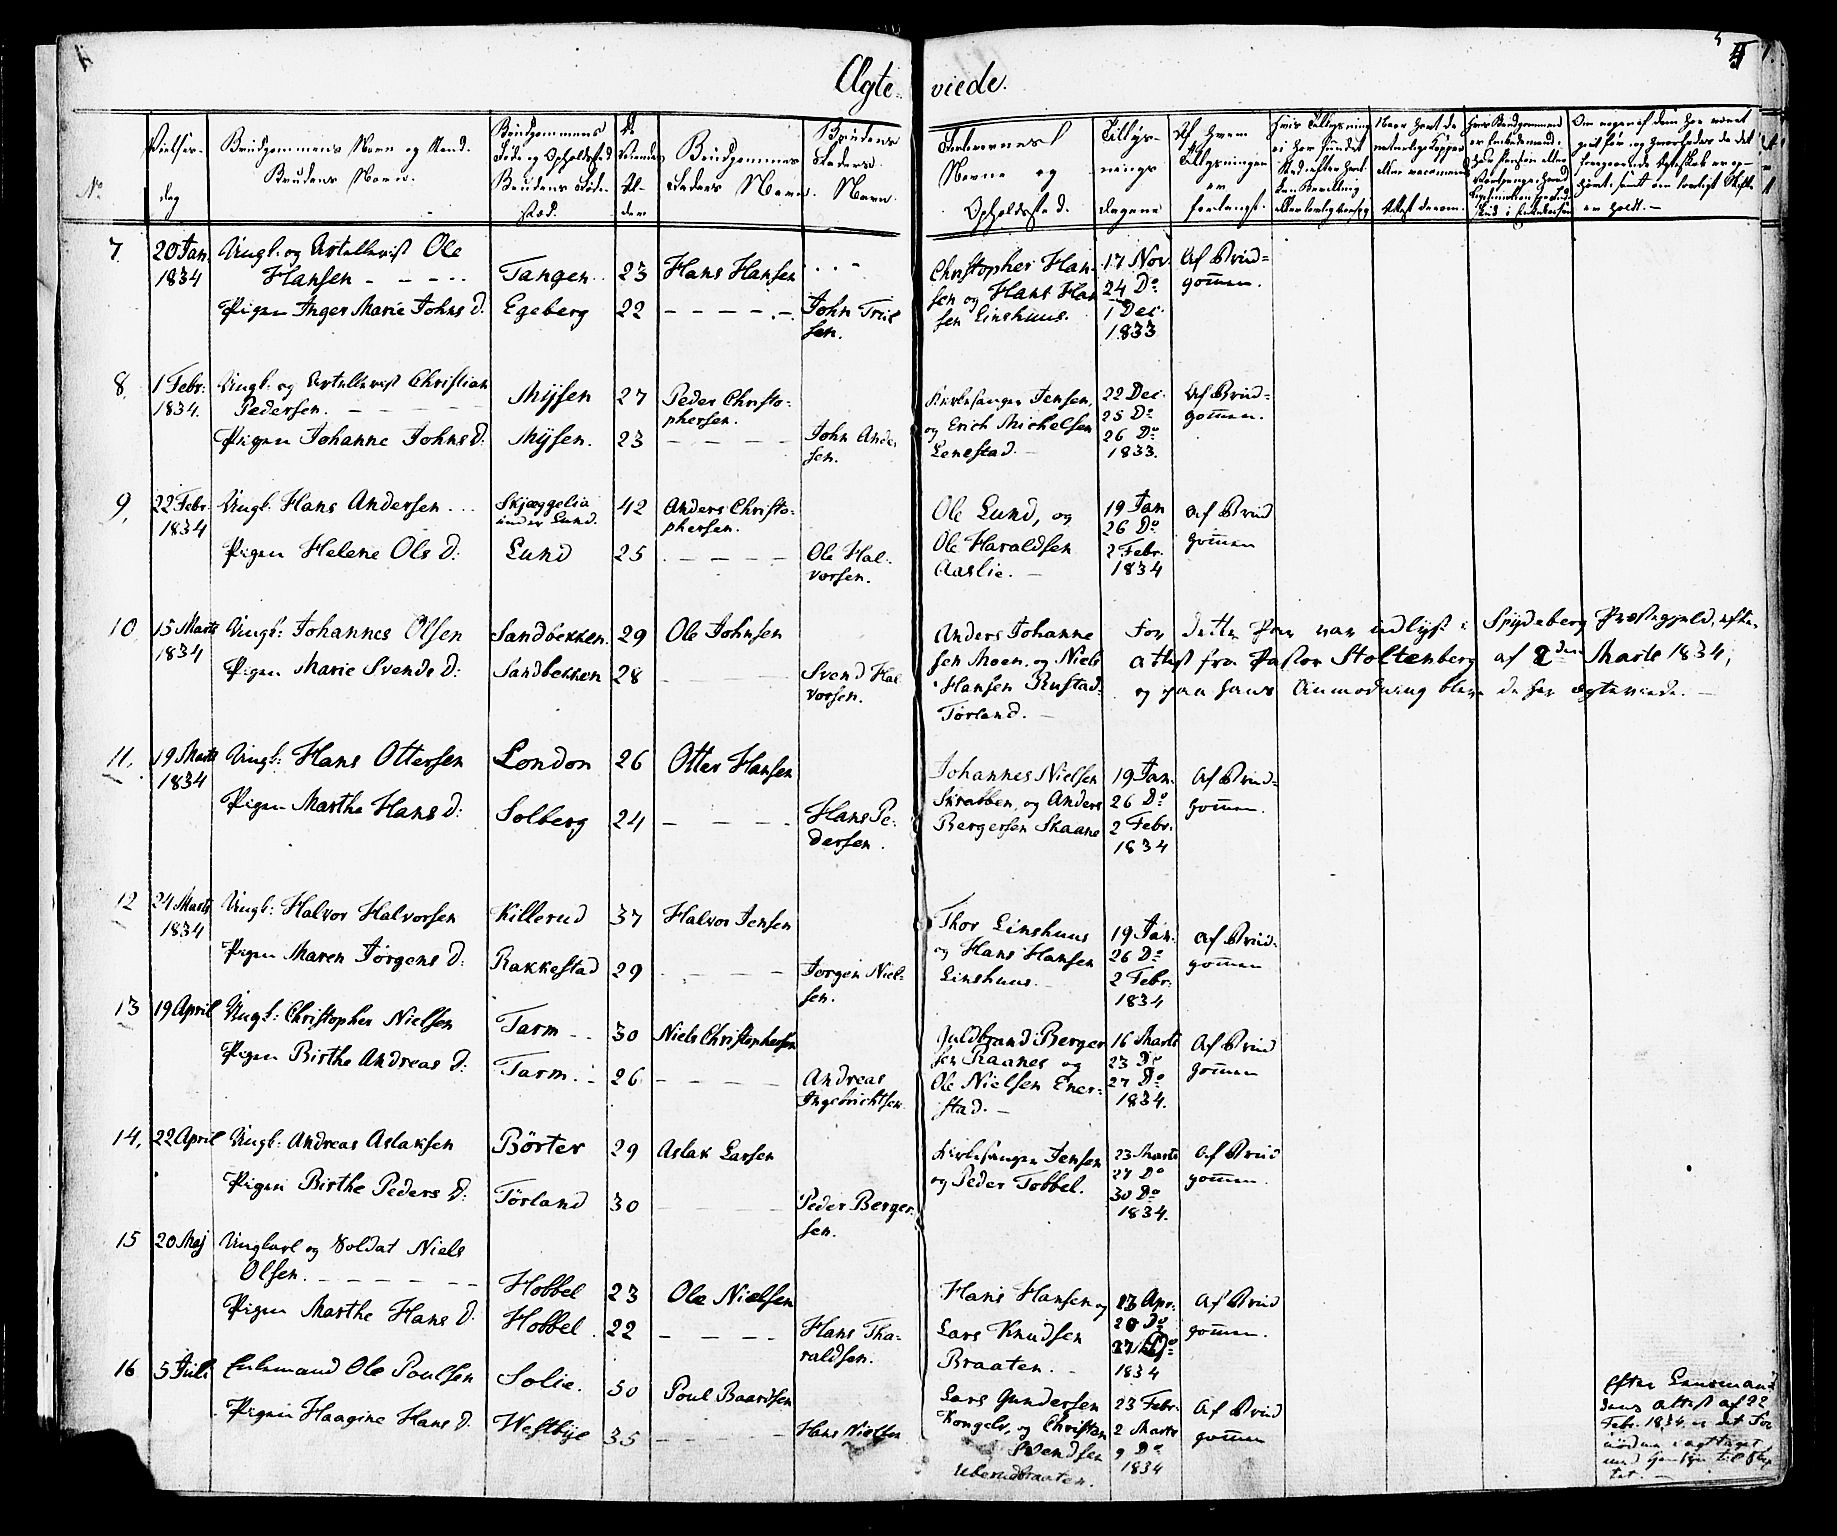 Ægte-viede.
5
No
Vielses-dag
Brudgommens Navn og Stand.
Brudens Navn.
Brudgommens Føde og Opholdssted
Brudens Fødested.
De Viendes Alder
Brudgommens Faders Navn.
Brudens Faders Navn.
Forlovernes Navne og Opholdssted.
Tillysnings dagene
Af hvem Tillysningen er forlangt.
7. 20 Jan. Ungk: og Artellerist Ole
1834 Hansen - - - - Tangen 23 Hans Hansen . . -
Pigen Inger Marie Johns D. Egeberg 22 - - - - - John Truelsen.
Christopher Hansen og Hans Hansen Linshuus.
17 Nov. 24 Do 1 Dec. 1833
Af Brudgommen.
8. 1 Febr. Ungk: og Artellerist Christian
1834. Pedersen. - - - - Mysen 27 Peder Christophersen.
Pigen Johanne Johns D. Mysen. 23 - - - - John Andersen.
Kirkesanger Jensen, og Erich Michelsen Lenestad. -
22 Dec. 25 Do 26 Do 1833.
Af Brudgommen.
9. 22 Febr. Ungk. Hans Andersen . . . Skjæggelia under Lund. 42 Anders Christophersen.
1834
Pigen Helene Ols D: Lund 25 - - - - Ole Halvorsen.
Ole Lund, og Ole Haraldsen Aaslie. -
19 Jan 26 Do 2 Febr. 1834
Af Brudgommen
10. 15 Marts Ungk: Johannes Olsen Sandbekken. 29 Ole Johnsen
1834
Pigen Marie Svends D: Sandbekken 28 - - - Svend Halvorsen.
Anders Johannesen Moen, og Niels Hansen Rustad Torland. -
For dette Par var udlyst i Spydeberg Præstegjeld, efter
Attest fra Pastor Stoltenberg af 2den Marts 1834,
og paa hans Anmodning bleve de her ægteviede. -
11. 19 Marts Ungk: Hans Ottersen London 26 Otter Hansen
1834
Pigen Marthe Hans D: Solberg 24 - - - - Hans Pedersen.
Johannes Nielsen Skrabben, og Anders Bergersen Skaane
19 Jan. 26 Do 2 Febr. 1834
Af Brudgommen.
12 24 Marts Ungk: Halvor Halvorsen Killerud 37 Halvor Jensen
1834
Pigen Maren Jørgens D: Rakkestad 29 - - - - Jørgen Nielsen.
Thor Linshuus og Hans Hansen Linshuus. -
19 Jan. 26 Do 2 Febr. 1834
Af Brudgommen
13 19 April Ungk: Christopher Nielsen Tarm - - 30 Niels Christophersen
Pigen Birthe Andreas D: Tarm. - 26 - - - - Andreas Ingebrichtsen.
Guldbrand Bergersen Raanes og Ole Nielsen Enerstad. -
16 Marts 23 Do 27 Do 1834.
Af Brudgommen
14. 22 April Ungk: Andreas Aslaksen Börter 29 Aslak Larsen
Pigen Birthe Peders D: Törland 30 - - - - Peder Bergersen.
Kirkesanger Jensen og Peder Tobbel.
23 Marts 27 Do 30 Do 1834.
Af Brudgommen.
15 20 Maj Ungkarl og Soldat Niels
Olsen. - - - - - Hobbel 23 Ole Nielsen
Pigen Marthe Hans D: Hobbel. 22 - - - - Hans Tharaldsen.
Hans Hansen og Lars Knudsen Braaten.
13 Apr. 20 Do 27 Do 1834
Af Brudgommen.
16 5 Juli Enkemand Ole Poulsen Solie. 50 Poul Baardsen
Pigen Haagine Hans D. Westbye 35 - - - - Hans Nielsen
Lars Gundersen Kongels, og Christian Svendsen Uberudbraaten.
23 Febr. 2 Marts 9 Do 1834
Af Brudgommen
efter Lensmandens Attest af 22 Febr. 1834, er det For